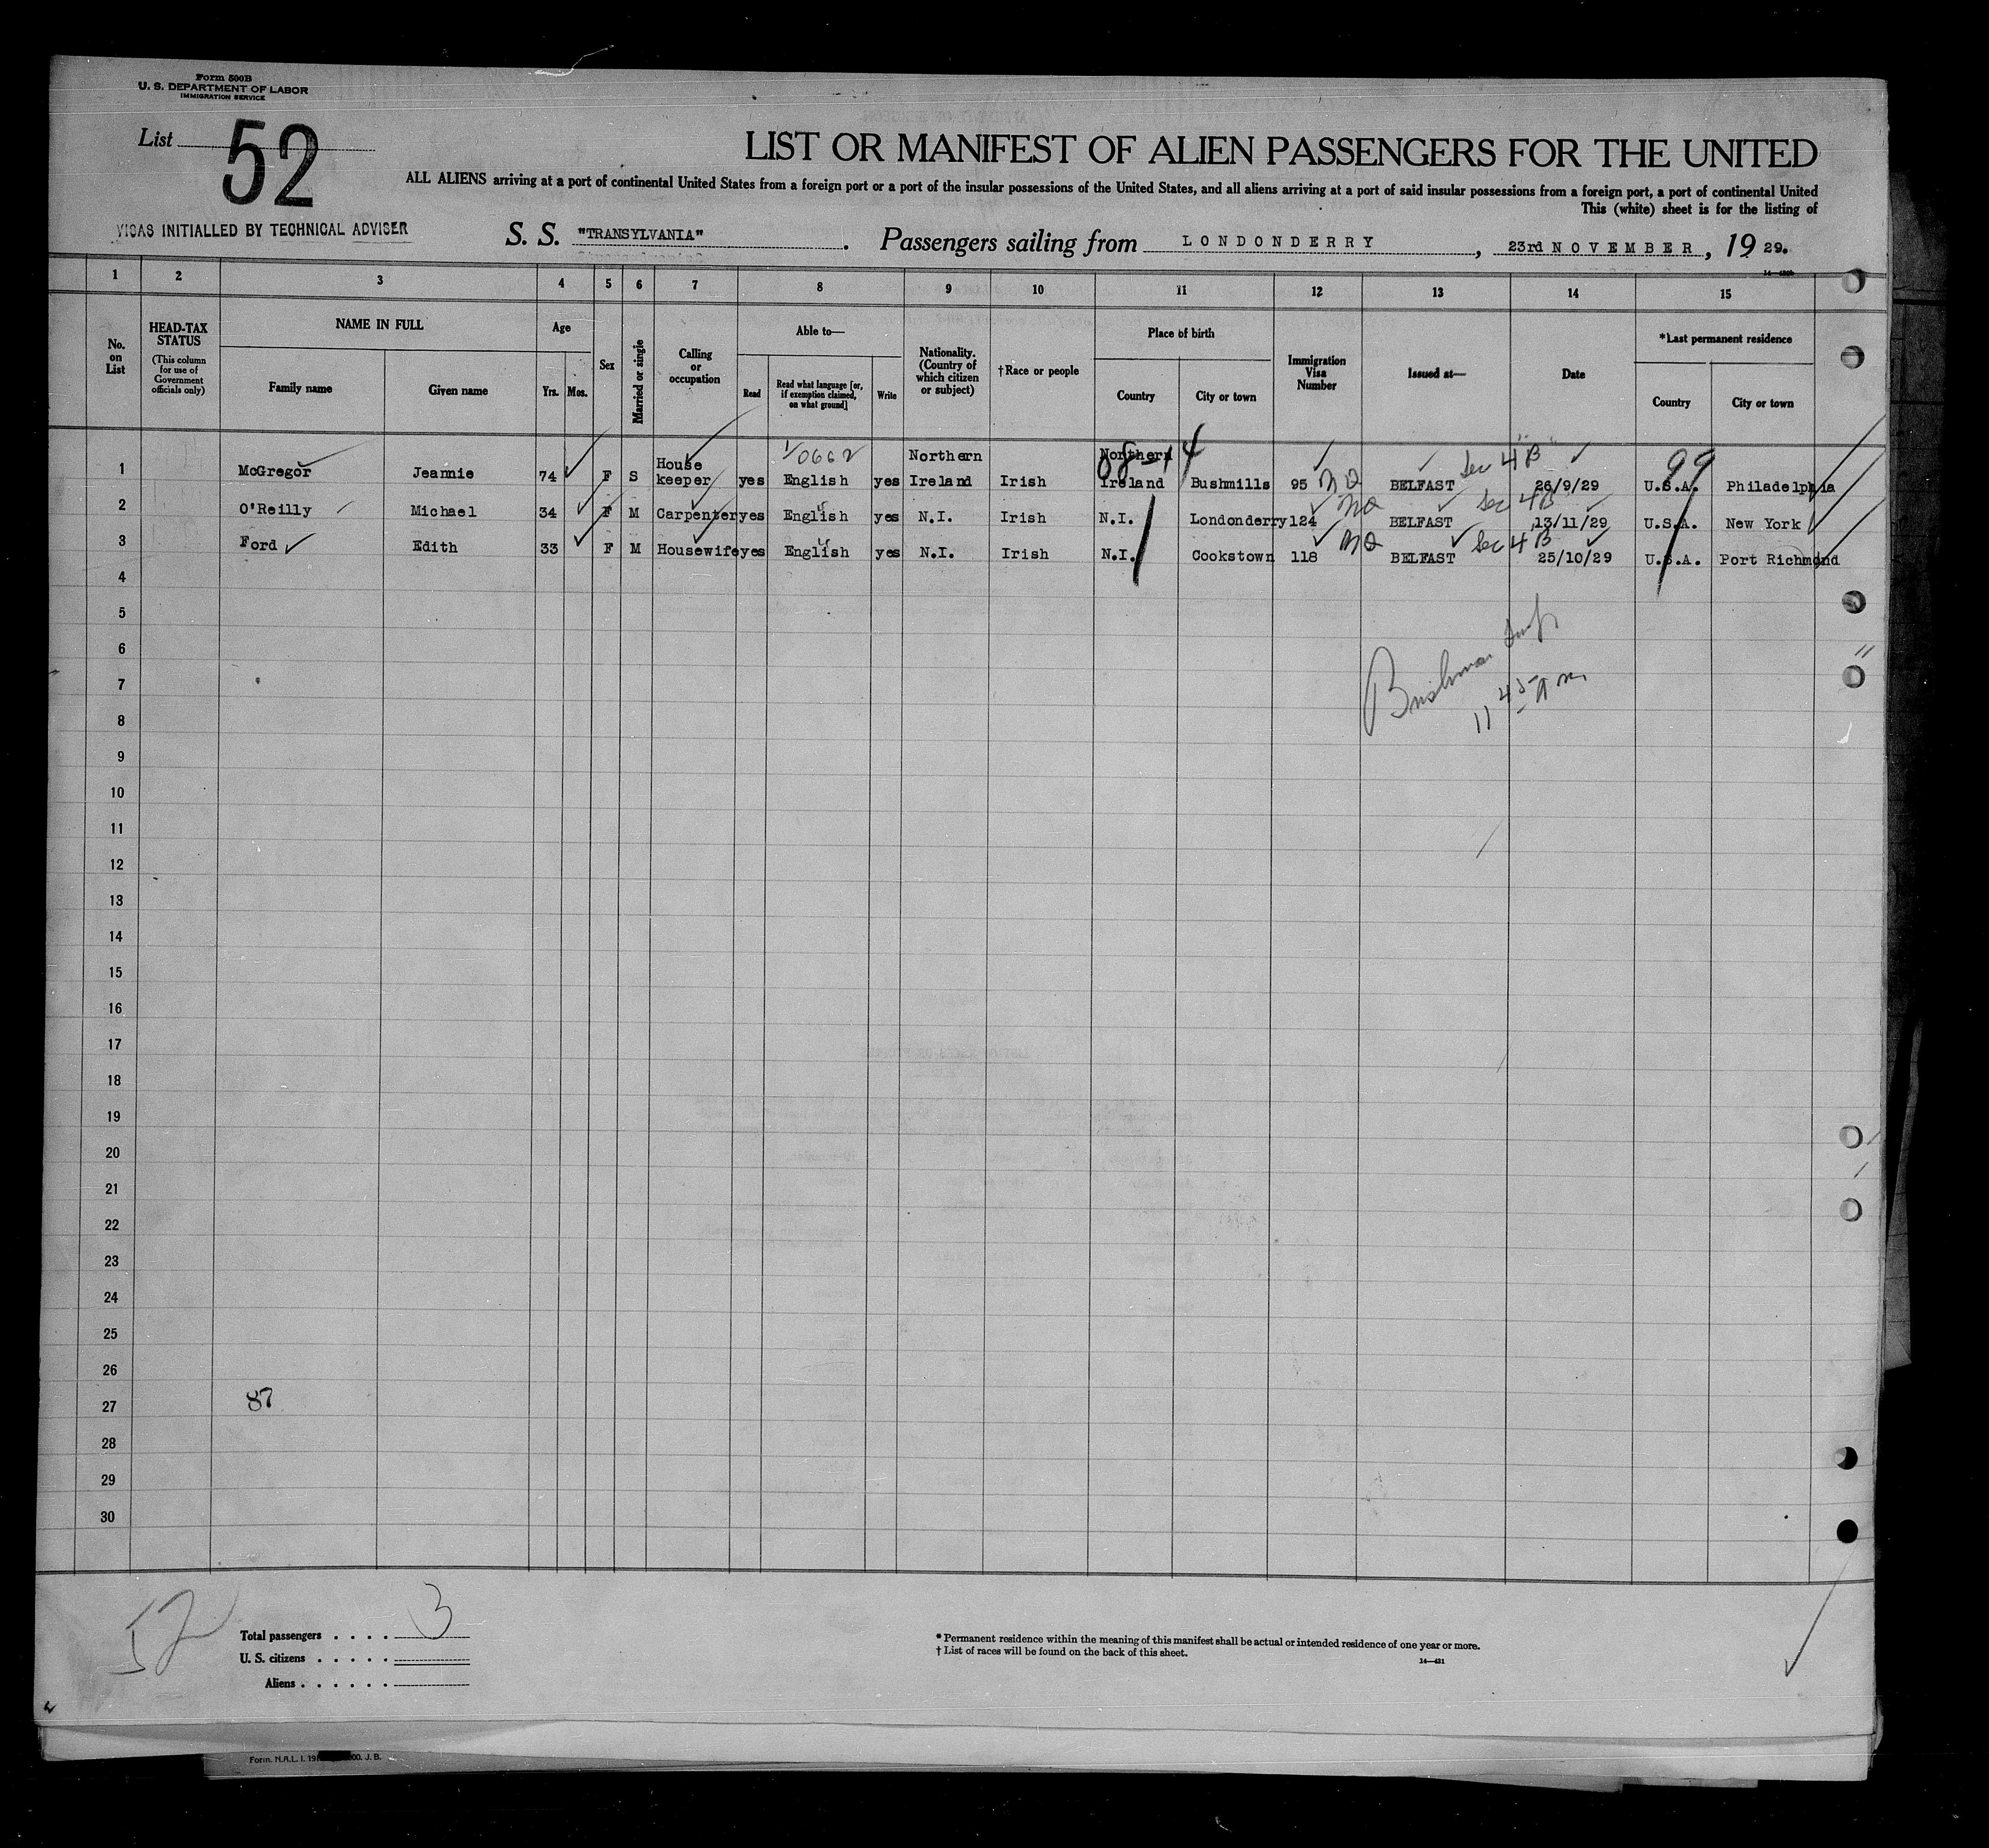 Form 500B
U. S. DEPARTMENT OF LABOR
IMMIGRATION SERVICE
List 52
LIST OR MANIFEST OF ALIEN PASSENGERS FOR THE UNITED
ALL ALIENS arriving at a port of continental United States from a foreign port or a port of the insular possessions of the United States, and all aliens arriving at a port of said insular possessions from a foreign port, a port of continental United
This (white) sheet is for the listing of
VISAS INITIALLED BY TECHNICAL ADVISER
S. S. "TRANSYLVANIA". Passengers sailing from LONDONDERRY, 23rd NOVEMBER, 19 29.
1 2 3 4 5 6 7 8 9 10 11 12 13 14 15
No. on List
HEAD-TAX STATUS (This column for use of Government officials only)
NAME IN FULL Family name Given name
Age Yrs. Mos.
Sex
Married or single
Calling or occupation
Able to— Read Read what language [or, if exemption claimed, on what ground] Write
Nationality. (Country of which citizen or subject)
†Race or people
Place of birth Country City or town
Immigration Visa Number
Issued at—
Date
*Last permanent residence Country City or town
1 McGregor Jeannie 74 F S House keeper yes English yes Northern Ireland Irish Northern Ireland Bushmills 95 NQ BELFAST Sec 4B 26/9/29 U.S.A. Philadelphia
2 O'Reilly Michael 34 F M Carpenter yes English yes N.I. Irish N.I. Londonderry 124 NQ BELFAST Sec 4B 13/11/29 U.S.A. New York
3 Ford Edith 33 F M Housewife yes English yes N.I. Irish N.I. Cookstown 118 NQ BELFAST Sec 4B 25/10/29 U.S.A. Port Richmond
99
4
5
6
7
11 45 AM
8
9
10
11
12
13
14
15
16
17
18
19
20
21
22
23
24
25
26
27 87
28
29
30
52
Total passengers . . . . 3
U. S. citizens . . . . .
Aliens . . . . . .
* Permanent residence within the meaning of this manifest shall be actual or intended residence of one year or more.
† List of races will be found on the back of this sheet.
14—431